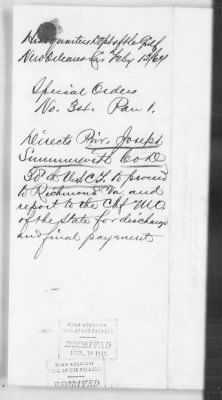 Headquarters Dept of the Gulf
New Orleans La. Feby 13/67
Special Orders
No. 34. Par 1.
Directs Priv. Joseph
Summerville Co. D
38th U.S.C.T. to proceed
to Richmond Va, and
report to the Chf M.O.
of the State for discharge
and final payment
RECEIVED
RECEIVED